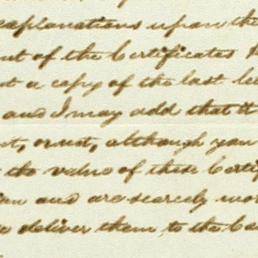 explanations upon the
nt of the Certificates
t a copy of the last le
and I may add that it
t, or not, although you
the value of these Certif
and are scarcely wor
deliver them to the Ca